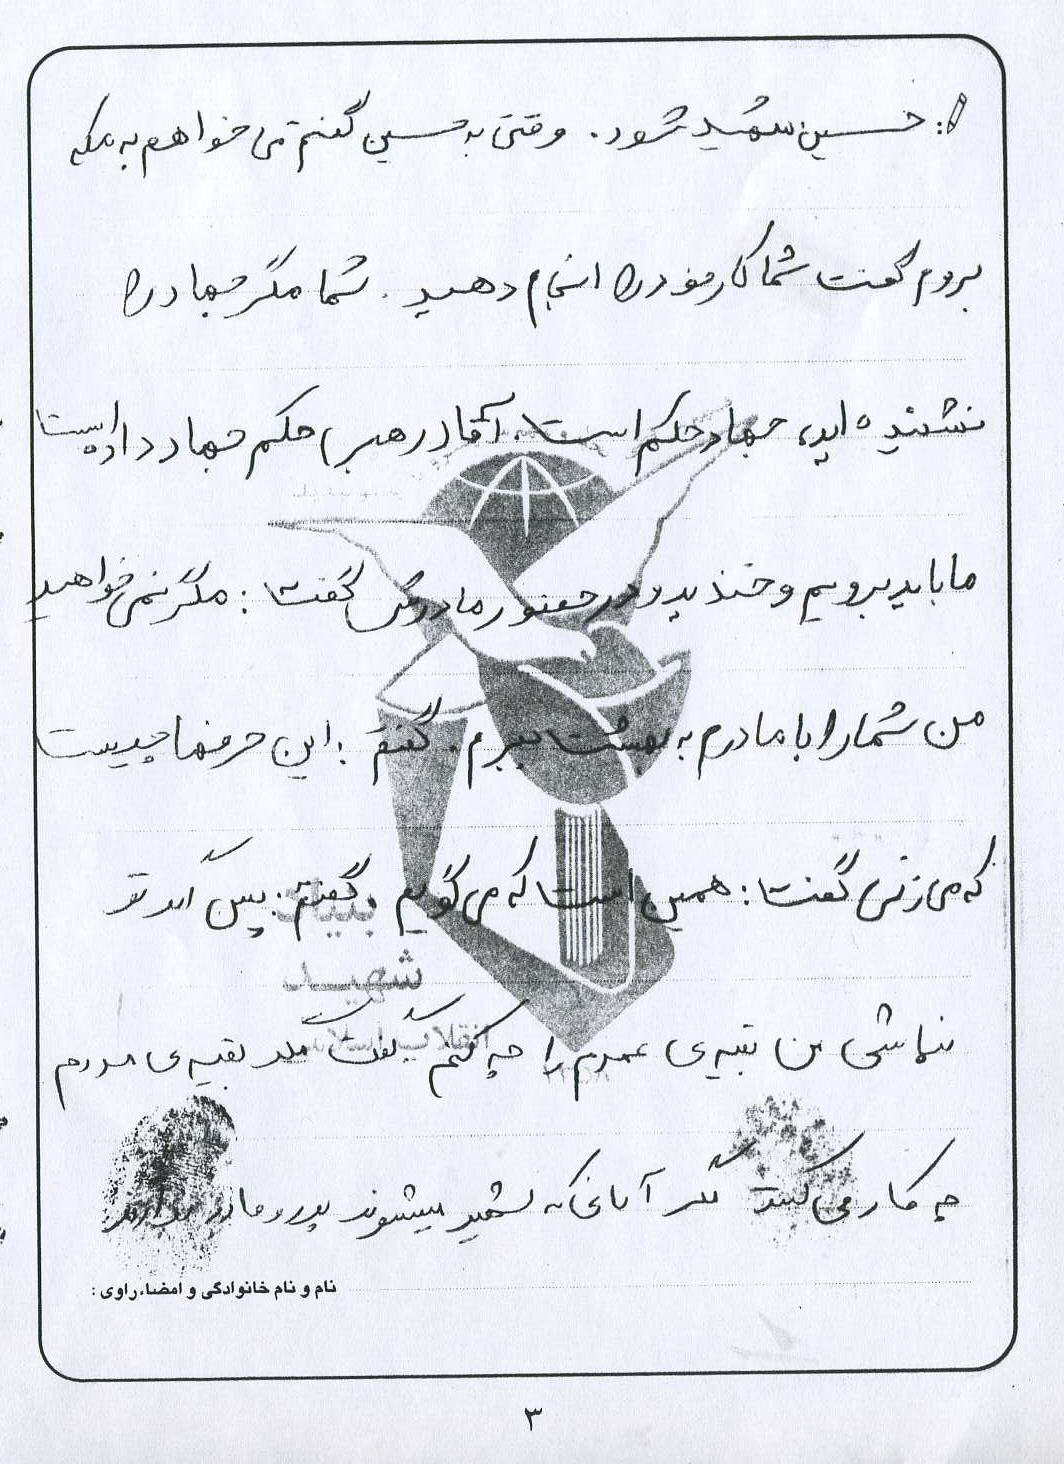 : حسین شهید شود. وقتی به حسین گفتم می خواهم به مکه
بروم گفت شما کار خود را انجام دهید. شما مگر جهاد را
نشنیده اید، جهاد حکم است، آقا رهبر حکم جهاد داده است
ما باید برویم و خندید و در حضور مادرش گفت: مگر نمی خواهید
من شما را با مادرم به بهشت ببرم. گفتم: این حرفها چیست
که می زنی گفت: همین است که می گویم. گفتم: پس اگر تو
نباشی من بقیه ی عمرم را چه کنم گفت مگر بقیه ی مردم
چه کار می کنند مگر آنهائی که شهید میشوند پدر و مادر ندارند
بنیاد
شهید
انقلاب اسلامی
نام و نام خانوادگی و امضاء راوی :
۳